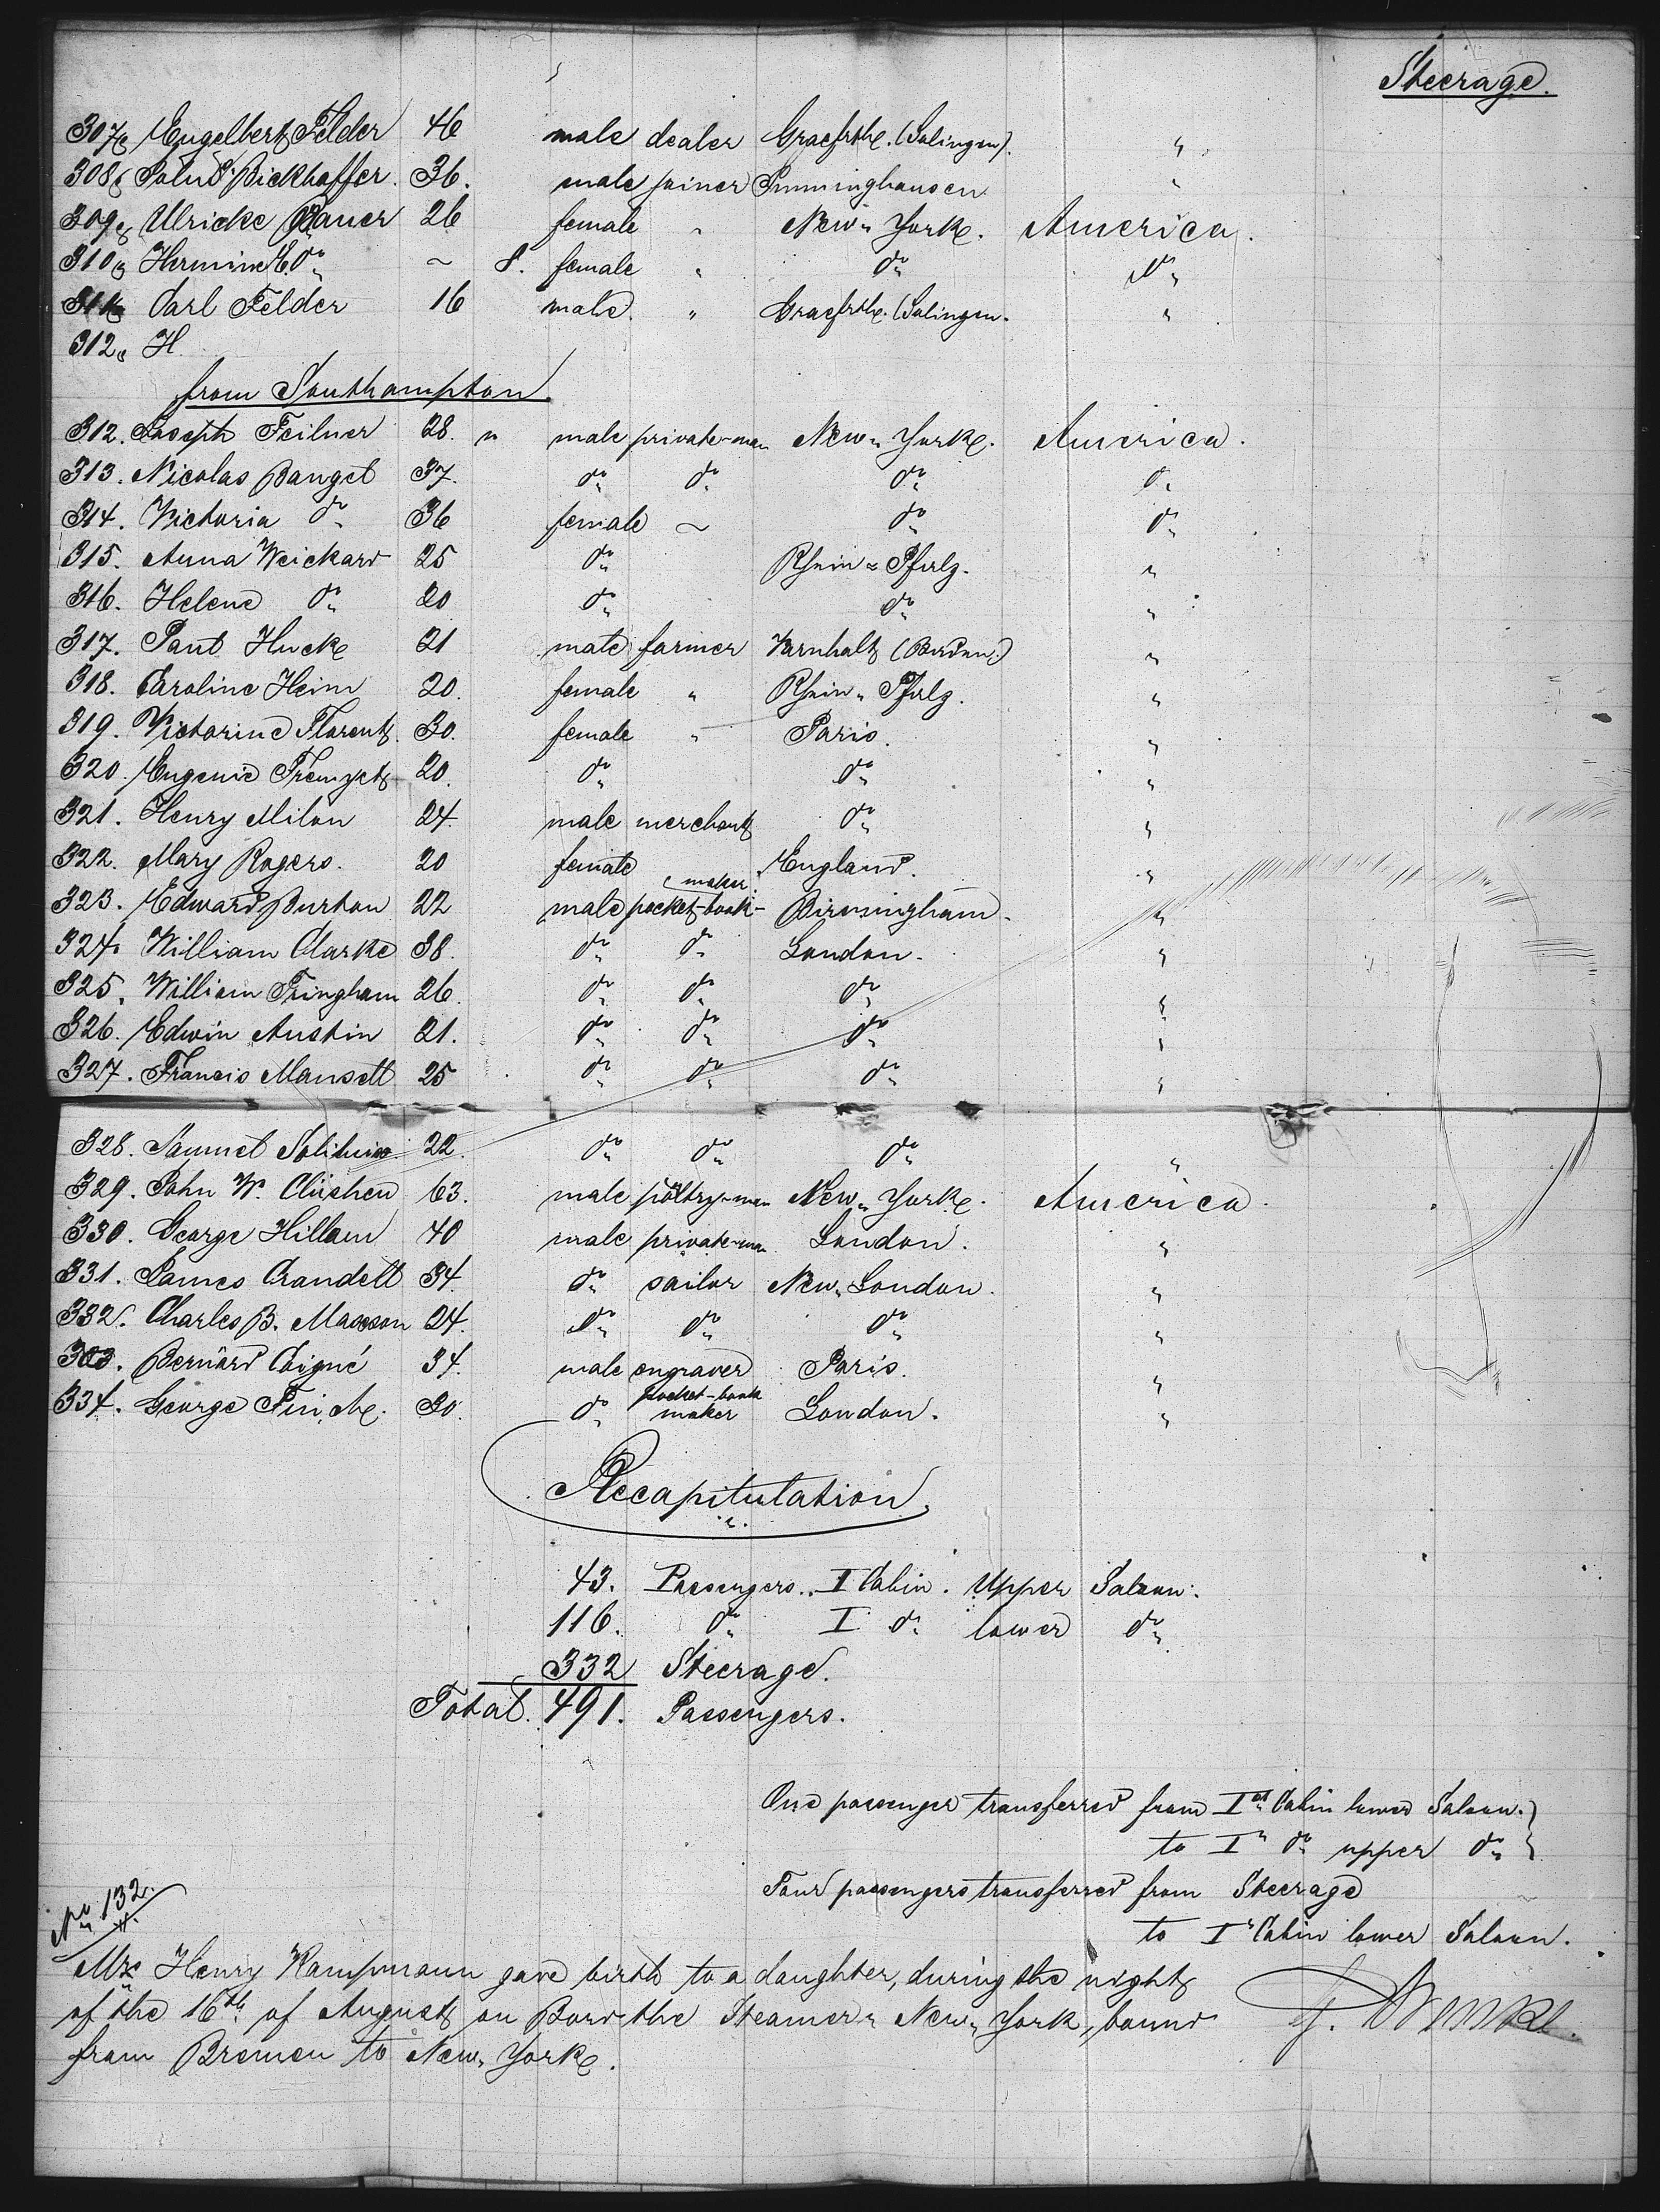 Steerage.
307. Engelbert Felder 46 male dealer Graefrth. (Solingen). "
308. Bickhoffer. 36. male joiner "
309. Ulricke Bauer 26 female " New-York. America.
310. Hermine do ~ 8. female " do do
311. Carl Felder 16 male. " Graefrth. (Solingen. "
312. H
from Southampton.
312. Joseph Feilner 28. " male private-man New-York. America.
313. Nicolas Banget 37. do do do do
314. Victoria do 36 female ~ do do
315. Anna Weickard 25 do Rhein-Pfalz. "
316. Helene do 20 do do "
317. Paul Hucke 21 male farmer Varnhalt (Baden.) "
318. Caroline Heim 20. female " Rhein-Pfalz. "
319. Victorine Florent. 30. female " Paris. "
320. Eugenie 20. do do "
321. Henry Milon 24. male merchant do "
322. Mary Rogers. 20 female England. "
323. Edward Burton 22 male pocket-book-maker Birmingham. "
324. William Clarke 38. do do London. "
325. William Fringham 26. do do do "
326. Edwin Austin 21. do do do "
327. Francis Mansell 25 do do do "
328. Samuel 22. do do do "
329. John W. Clüshen 63. male poltry-man New-York. America.
330. George Hillam 40 male private-man London. "
331. James Crandell 34. do sailor New-London. "
332. Charles B. Maxson 24. do do do "
333. Bernard Coigné 34. male engraver Paris. "
334. George Finch. 30. do pocket-book maker London. "
Recapitulation.
43. Passengers. I Cabin. Upper Saloon.
116. do I do lower do
332 Steerage.
Total. 491. Passengers.
One passenger transferred from Ist Cabin lower Saloon.
to I" do upper do
Four passengers transferred from Steerage
to I" Cabin lower Saloon.
No 132.
Mrs Henry Kampmann gave birth to a daughter, during the night
of the 16th of August on Bord the Steamer "New-York" bound
from Bremen to New-York.